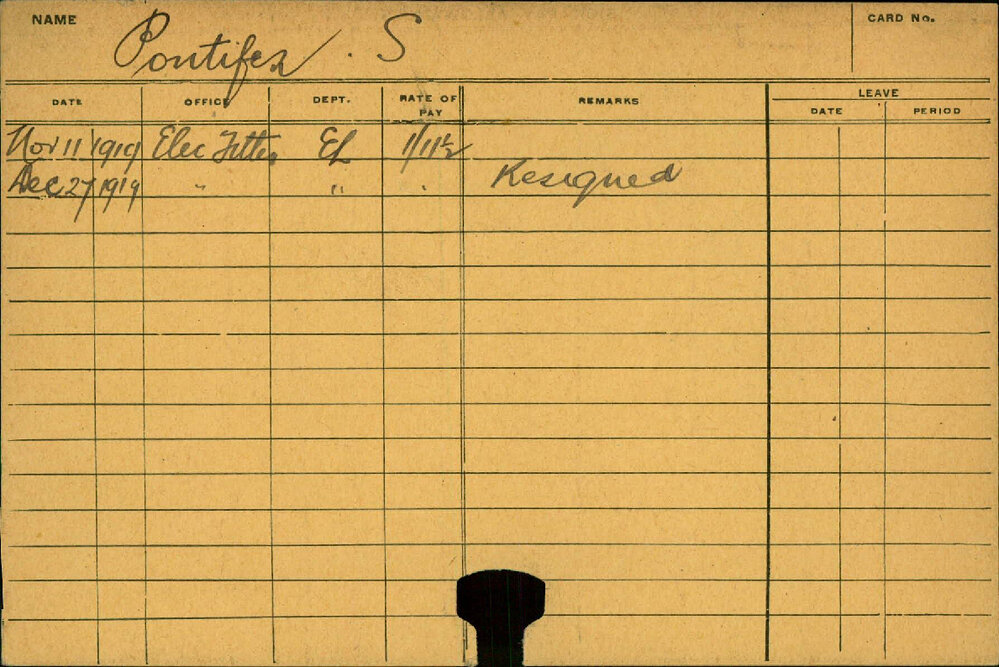 NAME Pontifex . S CARD No.
DATE OFFICE DEPT. RATE OF PAY REMARKS LEAVE
DATE PERIOD
Nov 11 1919 Elec Fitter EL 1/11½
Dec 27 1919 " " " Resigned